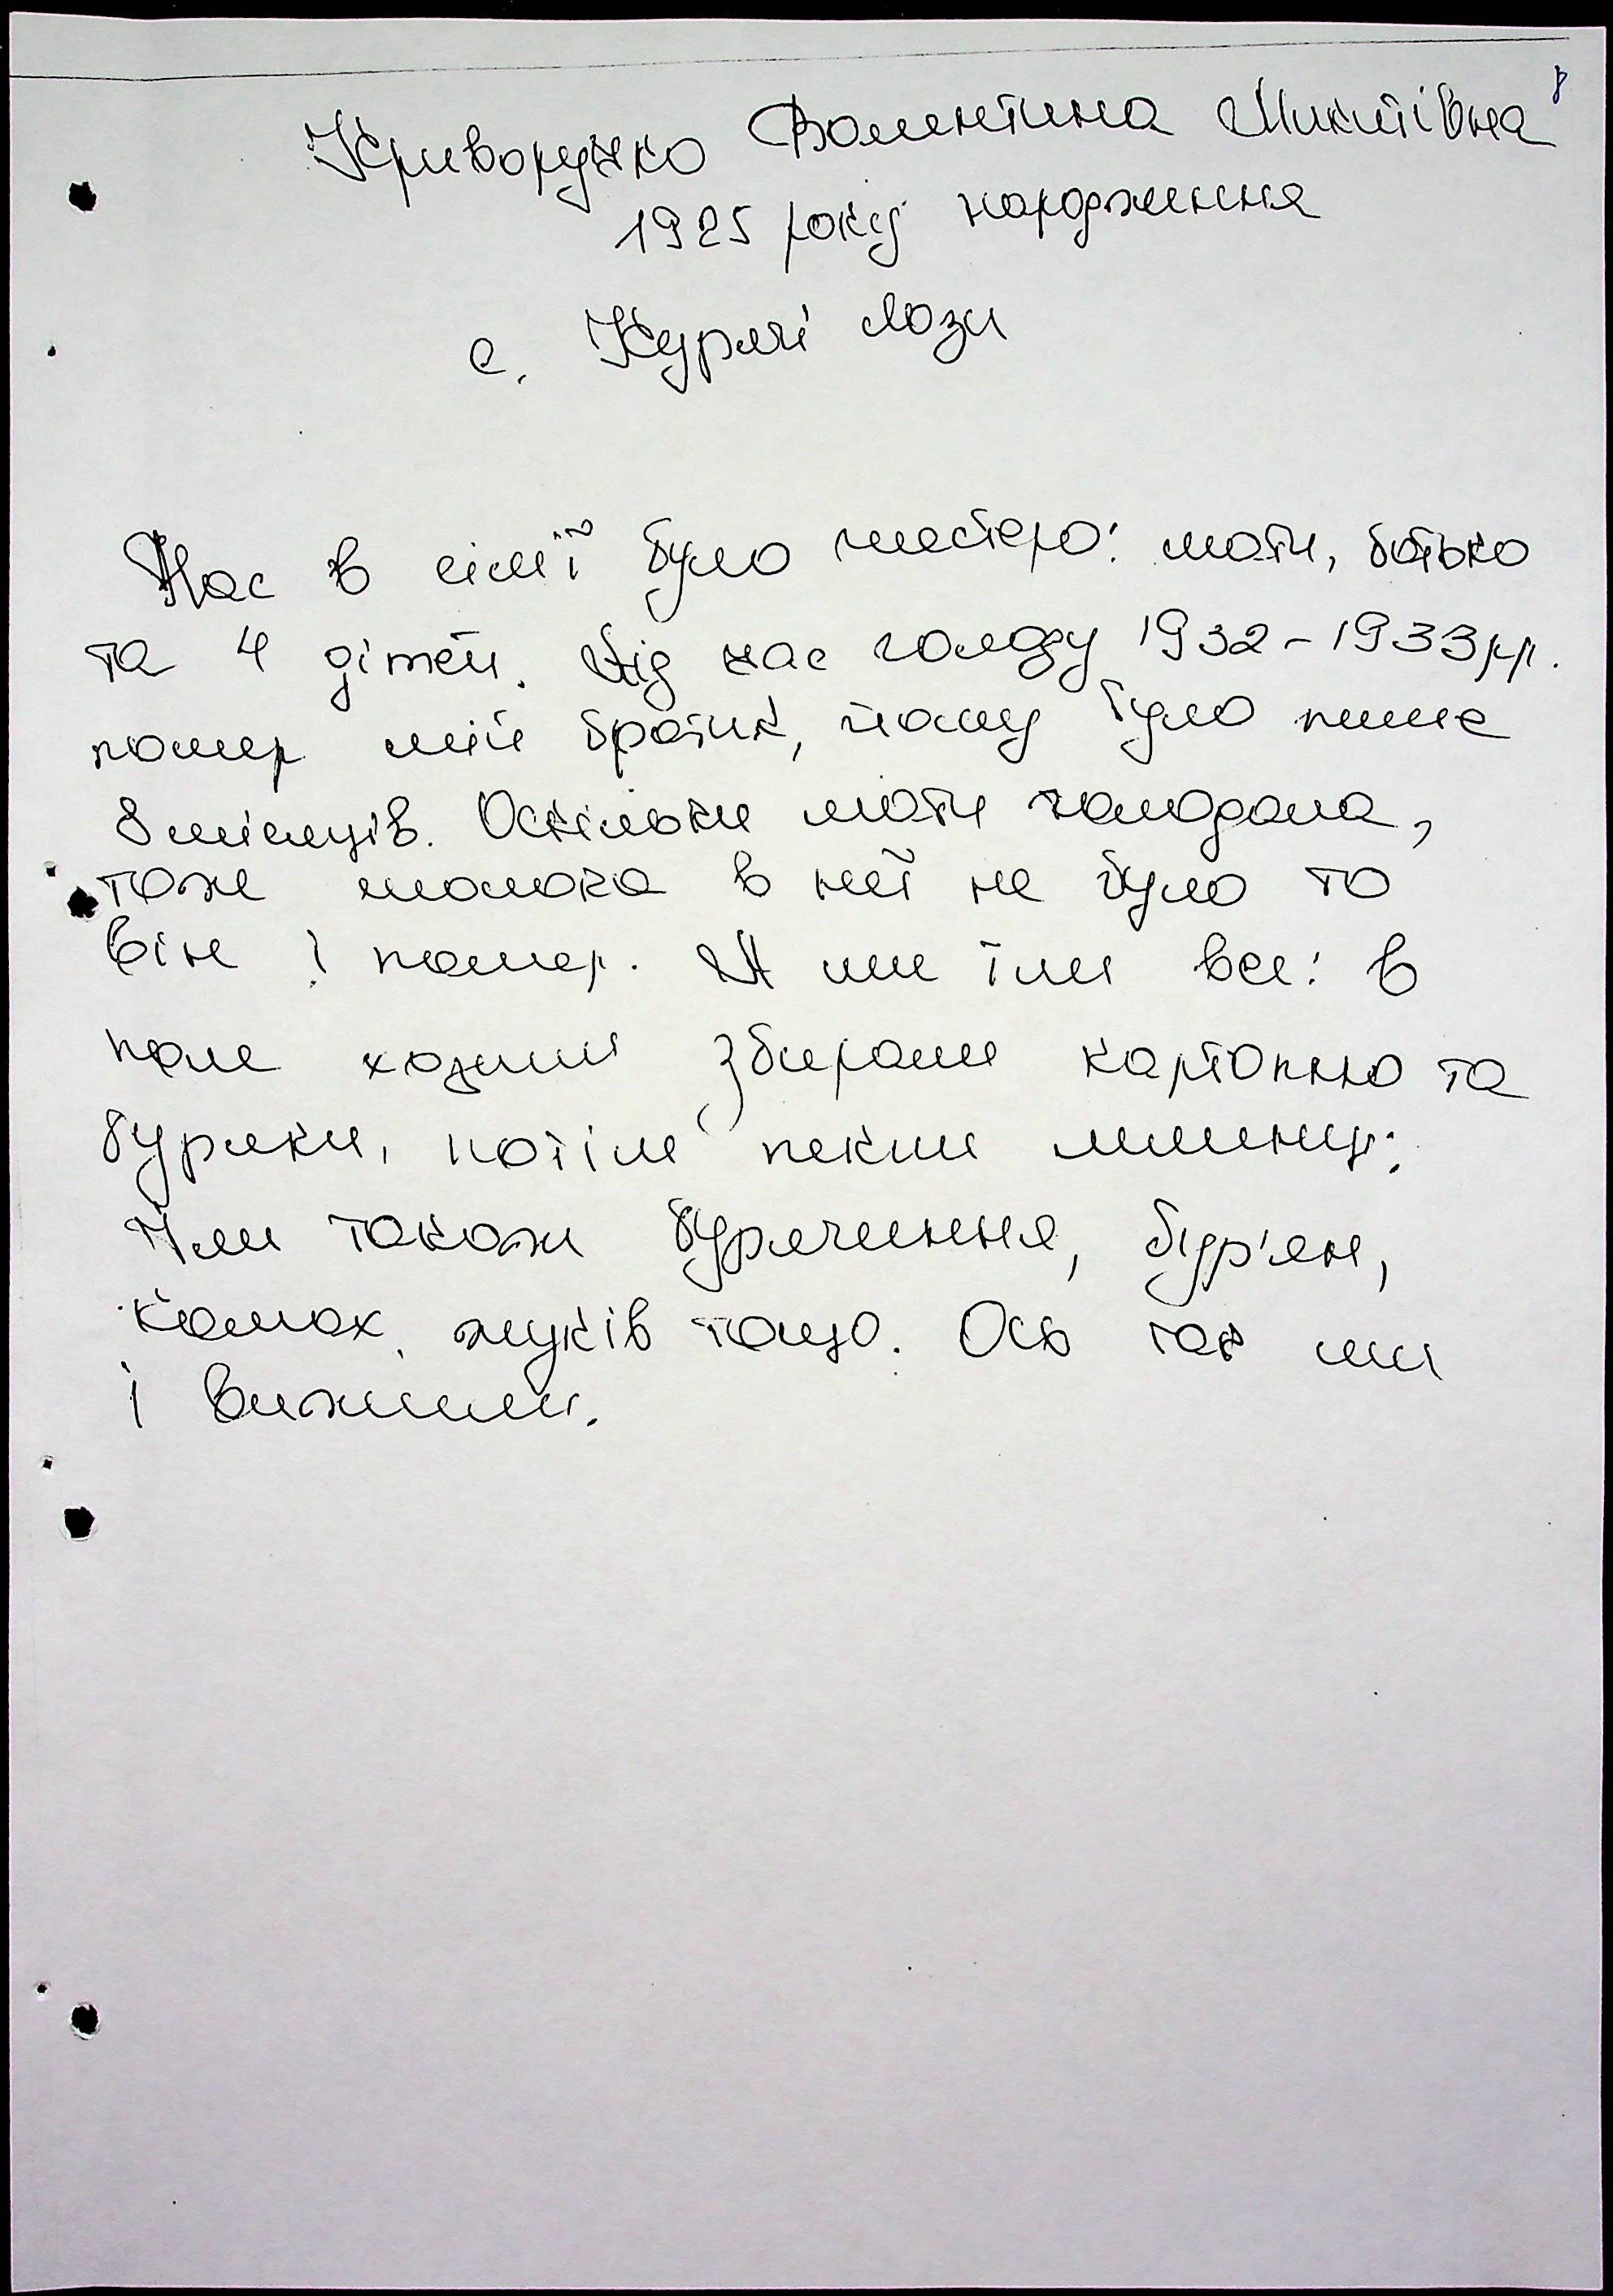 8
Криворучко Валентина Микитівна
1925 року народження
с. Курячі Лози
Нас в сім'ї було шестеро: мати, батько
та 4 дітей. Під час голоду 1932-1933рр.
помер мій братик, йому було лише
8 місяців. Оскільки мати голодала,
тоже молока в неї не було то
він і помер. А ми їли все: в
поле ходили збирали картоплю та
буряки, потім пекли млинці.
Їли також бурячиння, бур'ян,
комах, жуків тощо. Ось так ми
і вижили.